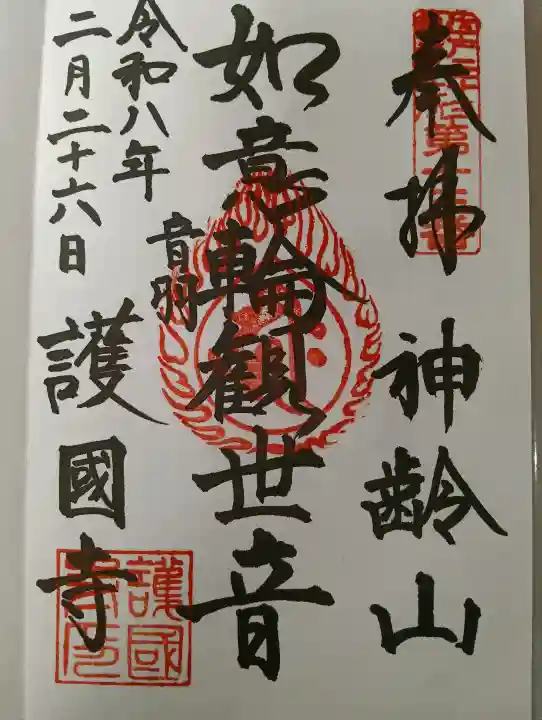 奉拝 神齢山
如意輪観世音
音羽 護國寺
令和八年
二月二十六日
護國寺印